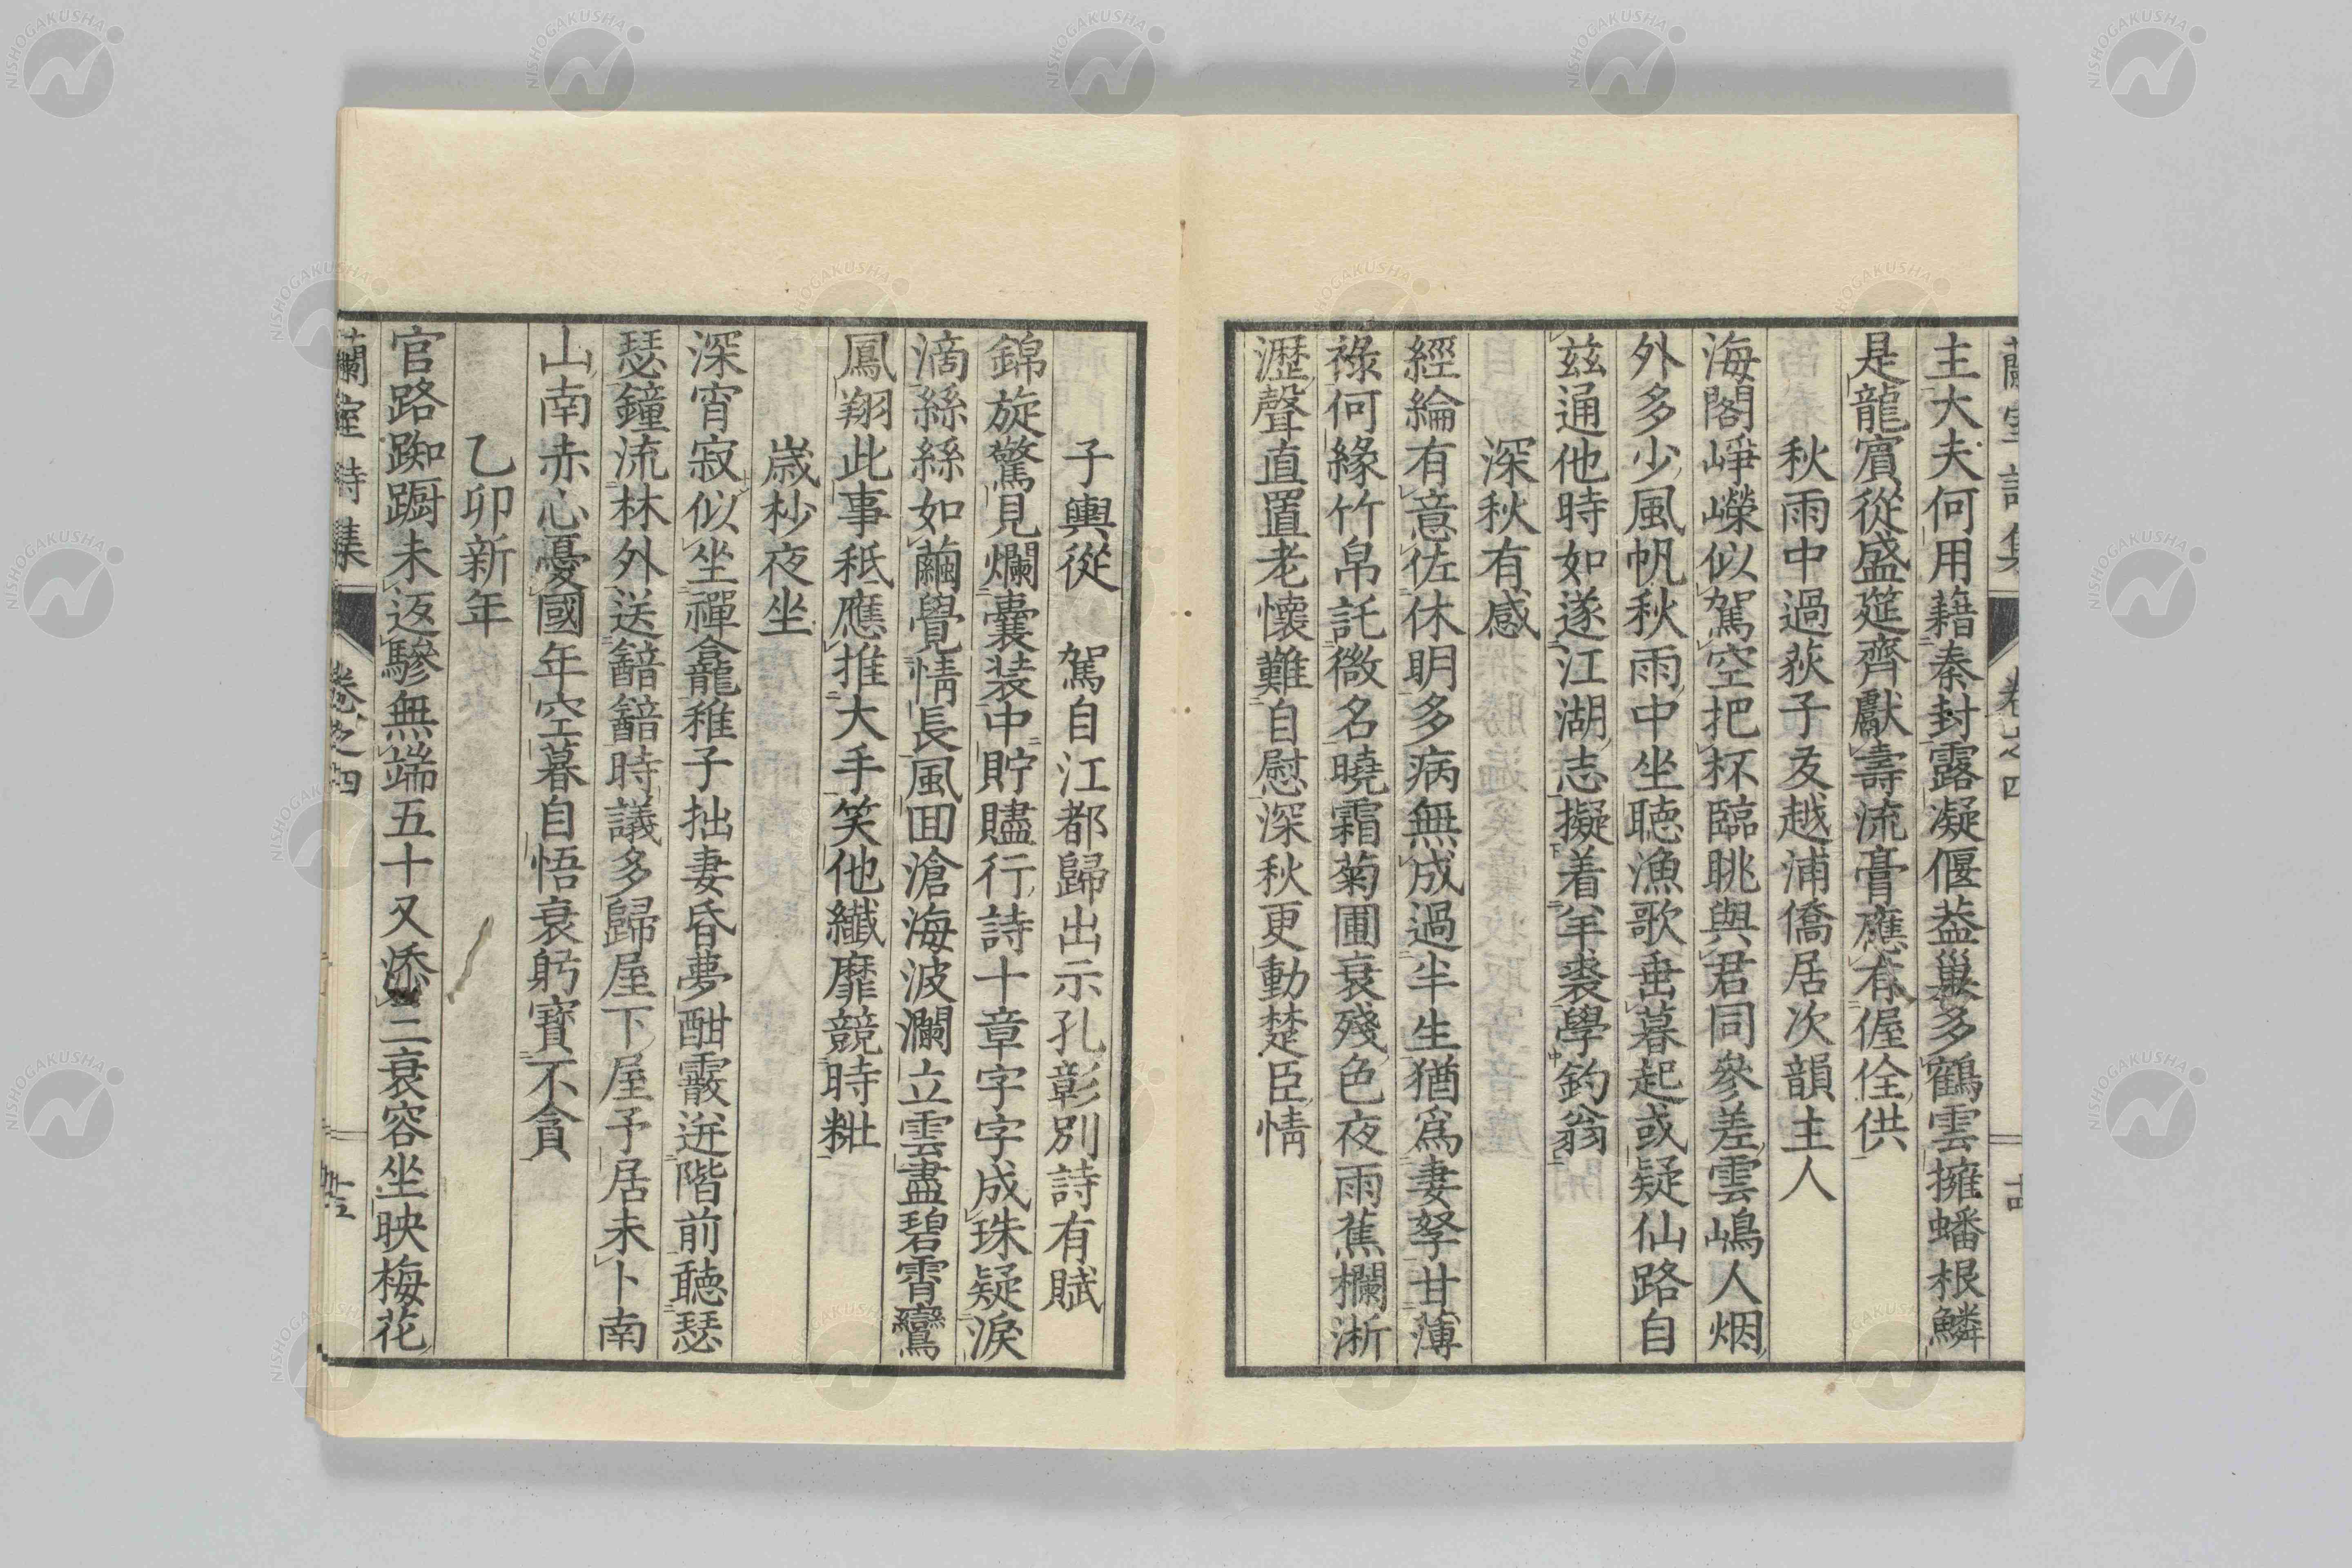 主大夫何用藉秦封露凝偃葢巢多鶴雲擁蟠根鱗
是龍賓從盛筵齊獻壽流膏應有偓佺供
秋雨中過荻子友越浦僑居次韻主人
海閣崢嶸似駕空把杯臨眺與君同參差雲嶋人烟
外多少風帆秋雨中坐聴漁歌垂暮起或疑仙路自
茲通他時如遂江湖志擬着羊裘學釣翁
深秋有感
經綸有意佐休明多病無成過半生猶爲妻孥甘薄
祿何緣竹帛託微名曉霜菊圃衰殘色夜雨蕉欄淅
瀝聲直置老懷難自慰深秋更動楚臣情
子輿從　駕自江都歸出示孔彰別詩有賦
錦旋驚見爛囊装中貯贐行詩十章字字成珠疑淚
滴絲絲如繭覺情長風囬滄海波瀾立雲盡碧霄鸞
鳳翔此事秖應推大手笑他纎靡競時粧
歳杪夜坐
深宵寂似坐禪龕稚子拙妻昏夢酣霰迸階前聴瑟
瑟鐘流林外送韽韽時議多歸屋下屋予居未卜南
山南赤心憂國年空暮自悟衰躬寶不貪
乙卯新年
官路踟蹰未返驂無端五十又添三衰容坐映梅花
蘭室詩集
卷之四
NISHOGAKUSHA